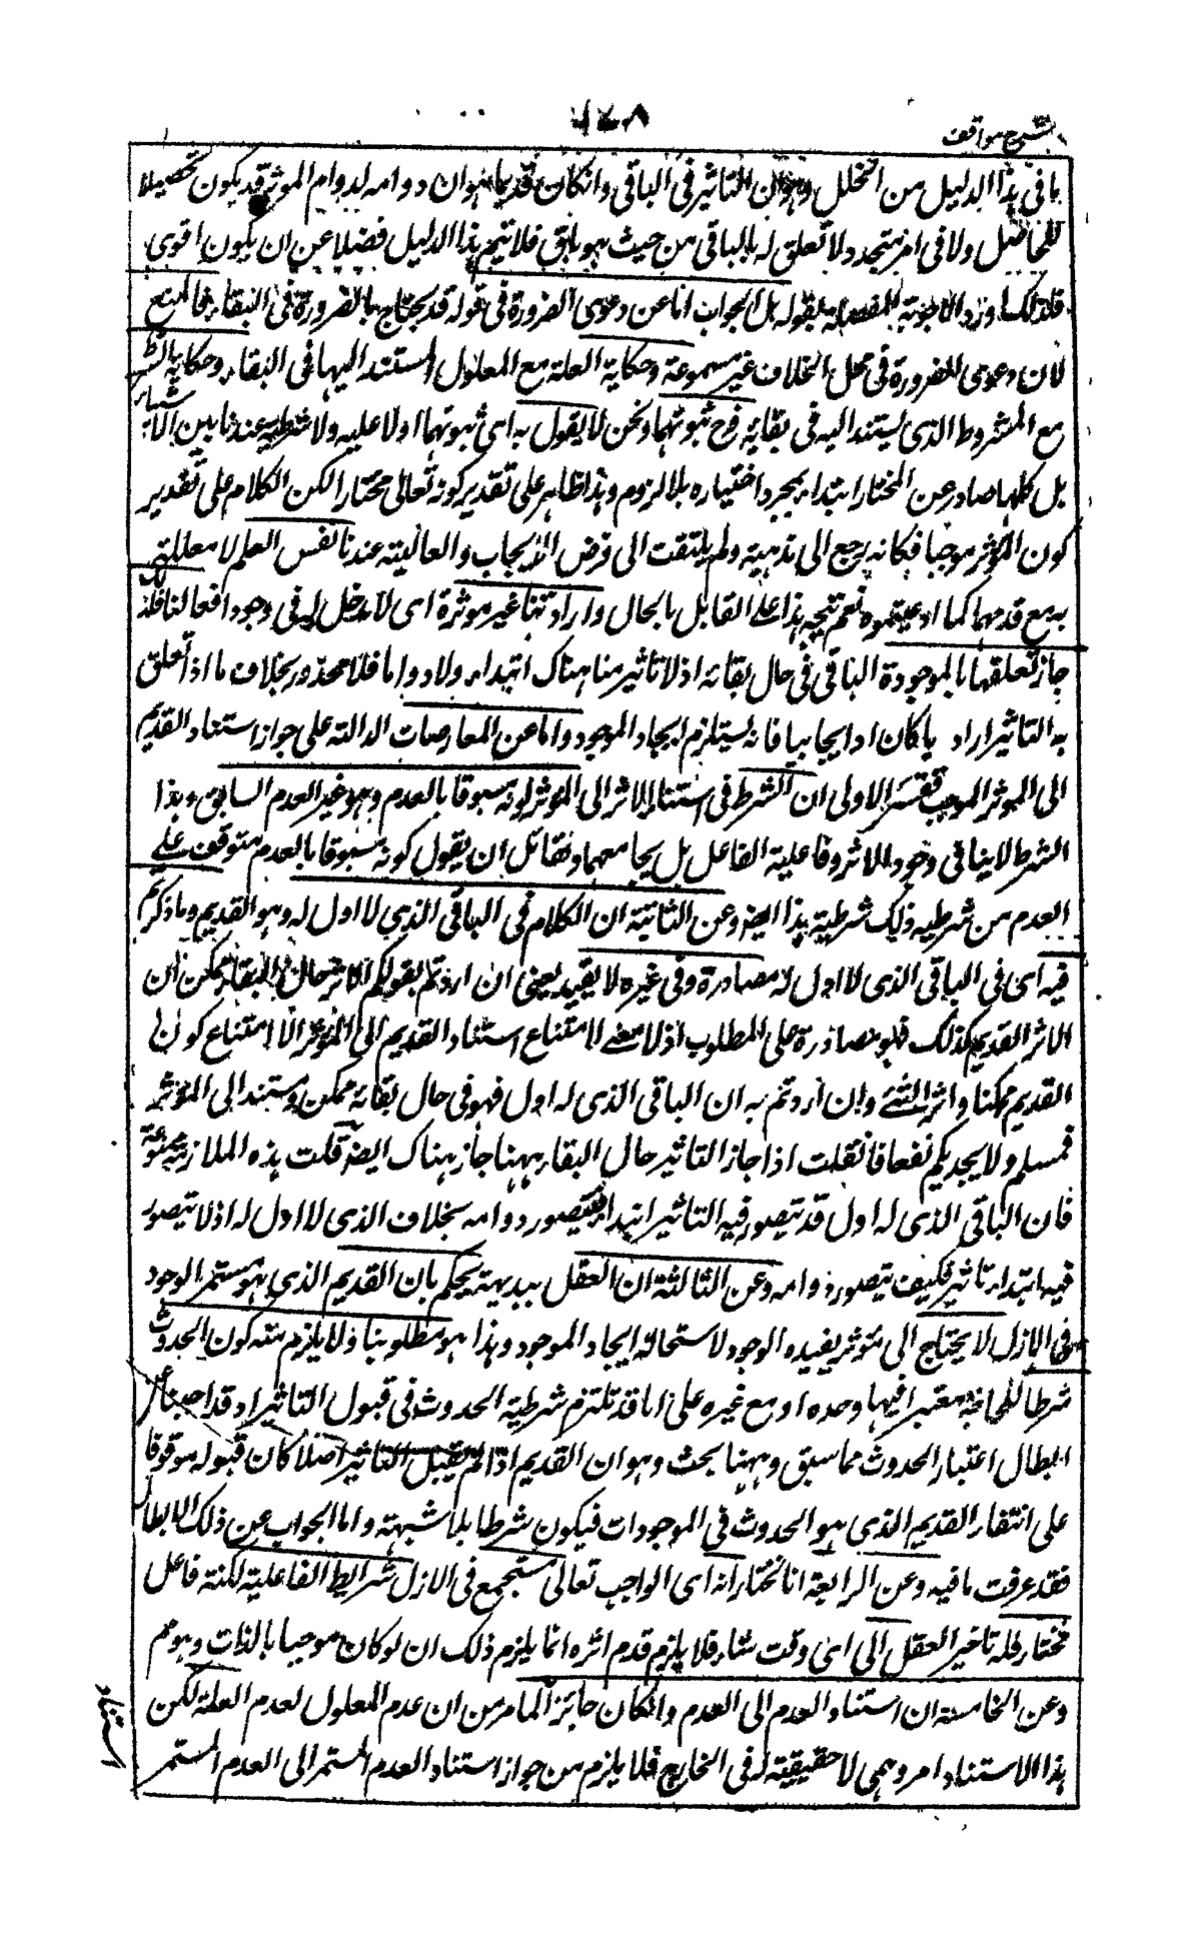 شرح مواقف
ما في هذا الدليل من الخلل وهو ان التاثير في الباقي وان كان قديما هو ان دوامه لدوام الموثر قد يكون تحصيلا
للحاصل ولا في امر متجدد لا تعلق له بالباقي من حيث هو باق فلا يتم هذا الدليل فضلا عن ان يكون اقوى
فلذلك اورد الاجوبة المفصلة بقوله بل الجواب اما عن دعوى الضرورة في قوله قد يحتاج بالضرورة في البقاء فالمنع
لان دعوى الضرورة في محل الخلاف غير مسموعة وحكاية العلة مع المعلول المستند اليها في البقاء وحكاية الشرط
مع المشروط الذي يستند اليه في بقائه فرع ثبوتهما ونحن لا نقول به اي ثبوتهما اذ لا علية ولا شرطية عندنا بين الاشياء
بل كلها صادر عن المختار ابتداء بمجرد اختياره بلا لزوم وهذا ظاهر على تقدير كونه تعالى مختارا لكن الكلام على تقدير
كون المؤثر موجبا فكانه رجع الى مذهبه ولم يلتفت الى فرض الايجاب والعالمية عندنا نفس العلم لا معللة
به مع قدمهما كما ادعيتموه نعم يتجه هذا على القائل بالحال وارادتنا غير موثرة اى لا مدخل لها في وجود افعالنا فلذلك
جاز تعلقها بالموجودة الباقي في حال بقائه اذ لا تاثير منا هناك ابتداء ولا دواما فلا محذور بخلاف ما اذا تعلق
به التاثير اراد يا كان او ايجابيا فانه يستلزم ايجاد الموجود واما عن المعارضات الدالة على جواز استناد القديم
الى الموثر الموجب فعن الاولى ان الشرط في استناد الاثر الى الموثر كونه مسبوقا بالعدم وهو غير العدم السابق وهذا
الشرط لا ينافي وجود الاثر وفاعلية الفاعل بل يجامعهما ولقائل ان يقول كونه مسبوقا بالعدم متوقف على
العدم من شرطية ذلك شرطية هذا ايضا وعن الثانية ان الكلام في الباقي الذي لا اول له وهو القديم وما ذكرتم
فيه اى في الباقي الذى لا اول له مصادرة وفي غيره لا يفيد يعنى ان اردتم بقولكم الاثر حال البقاء ممكن ان
الاثر القديم كذلك فهو مصادرة على المطلوب اذ لا معنى لامتناع استناد القديم الى الموثر الا امتناع كون
القديم ممكنا واثرا لشئ وان اردتم به ان الباقي الذى له اول فهو في حال بقائه ممكن ومستند الى الموثر
فمسلم ولا يجديكم نفعا فان قلت اذا جاز التاثير حال البقاء ههنا جاز هناك ايضا قلت هذه الملازمة ممنوعة
فان الباقي الذى له اول قد يتصور فيه التاثير ابتداء فيتصور دوامه بخلاف الذى لا اول له اذ لا يتصور
فيه ابتداء تاثير فكيف يتصور دوامه وعن الثالثة ان العقل ببديهته يحكم بان القديم الذي هو مستمر الوجود
في الازل لا يحتاج الى مؤثر يفيده الوجود لاستحالة ايجاد الموجود وهذا هو مطلوبنا ولا يلزم منه كون الحدوث
شرطا للحاجة معتبرا فيها وحده او مع غيره على انا قد نلتزم شرطية الحدوث في قبول التاثير او قد اجبنا عن
ابطال اعتبار الحدوث مما سبق وههنا بحث وهو ان القديم اذا لم يقبل التاثير اصلا كان قبوله موقوفا
على انتفاء القديم الذى هو الحدوث في الموجودات فيكون شرطا بلا شبهة واما الجواب عن ذلك الابطال
فقد عرفت ما فيه وعن الرابعة انا نختار انه اى الواجب تعالى مستجمع في الازل شرايط الفاعلية لكنه فاعل
مختار فله تاخير الفعل الى اى وقت شاء فلا يلزم قدم اثره انما يلزم ذلك ان لو كان موجبا بالذات وهو مم
وعن الخامسة ان استناد العدم الى العدم وان كان جائزا لما مر من ان عدم المعلول لعدم العلة لكن
هذا الاستناد امر وهمى لا حقيقة له في الخارج فلا يلزم من جواز استناد العدم المستمر الى العدم المستمر
استناد